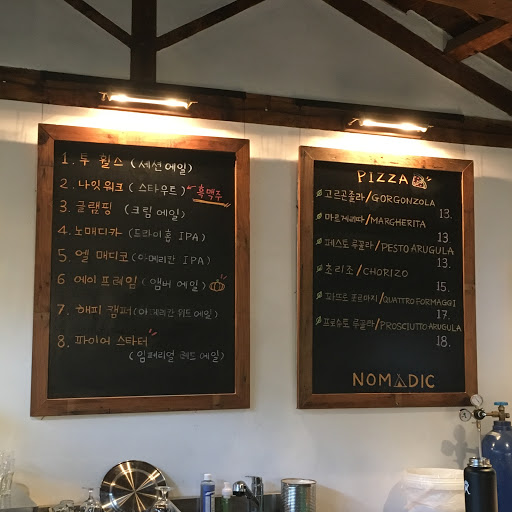 1. 투 휠스 (세션에일)
2. 나잇워크 (스타우트) 흑맥주
3. 글램핑 (크림에일)
4. 노매디카 (드라이홉 IPA)
5. 엘 매디코 (아메리칸 IPA)
6. 에이프레임 (앰버에일)
7. 해피 캠퍼 (아메리칸 위트에일)
8. 파이어 스타터
(임페리얼 레드에일)
PIZZA
고르곤졸라/GORGONZOLA
13.
마르게리따/MARGHERITA
13.
페스토 루꼴라/PESTO ARUGULA
13.
초리조/CHORIZO
15.
콰트로 포르마지/QUATTRO FORMAGGI
17.
프로슈토 루꼴라/PROSCIUTTO ARUGULA
18.
NOMADIC